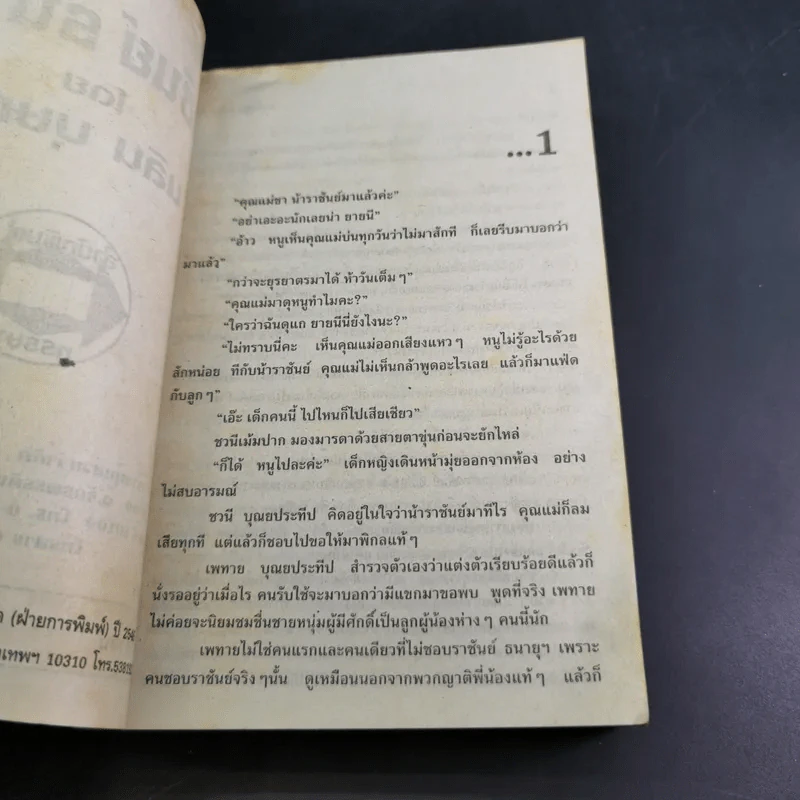 ...1
“คุณแม่ขา น้าราชันย์มาแล้วค่ะ”
“อย่าเอะอะนักเลยน่า ยายนี”
“อ้าว หนูเห็นคุณแม่บ่นทุกวันว่าไม่มาสักที ก็เลยรีบมาบอกว่า
มาแล้ว”
“กว่าจะยุรยาตรมาได้ ห้าวันเต็มๆ”
“คุณแม่มาดุหนูทำไมคะ?”
“ใครว่าฉันดุแก ยายนีนี่ยังไงนะ?”
“ไม่ทราบนี่คะ เห็นคุณแม่ออกเสียงแหวๆ หนูไม่รู้อะไรด้วย
สักหน่อย ทีกับน้าราชันย์ คุณแม่ไม่เห็นกล้าพูดอะไรเลย แล้วก็มาแฟ้ด
กับลูกๆ”
“เอ๊ะ เด็กคนนี้ ไปไหนก็ไปเสียเชียว”
ชวนีเม้มปาก มองมารดาด้วยสายตาขุ่นก่อนจะยักไหล่
“ก็ได้ หนูไปละค่ะ” เด็กหญิงเดินหน้ามุ่ยออกจากห้อง อย่าง
ไม่สบอารมณ์
ชวนี บุณยประทีป คิดอยู่ในใจว่าน้าราชันย์มาทีไร คุณแม่ก็ลม
เสียทุกที แต่แล้วก็ชอบไปขอให้มาพิกลแท้ๆ
เพทาย บุณยประทีป สำรวจตัวเองว่าแต่งตัวเรียบร้อยดีแล้วก็
นั่งรออยู่ว่าเมื่อไร คนรับใช้จะมาบอกว่ามีแขกมาขอพบ พูดที่จริง เพทาย
ไม่ค่อยจะนิยมชมชื่นชายหนุ่มผู้มีศักดิ์เป็นลูกผู้น้องห่างๆ คนนี้นัก
เพทายไม่ใช่คนแรกและคนเดียวที่ไม่ชอบราชันย์ ธนายุฯ เพราะ
คนชอบราชันย์จริงๆนั้น ดูเหมือนนอกจากพวกญาติพี่น้องแท้ๆ แล้วก็
(ฝ่ายการพิมพ์) ปี
10310 โทร.